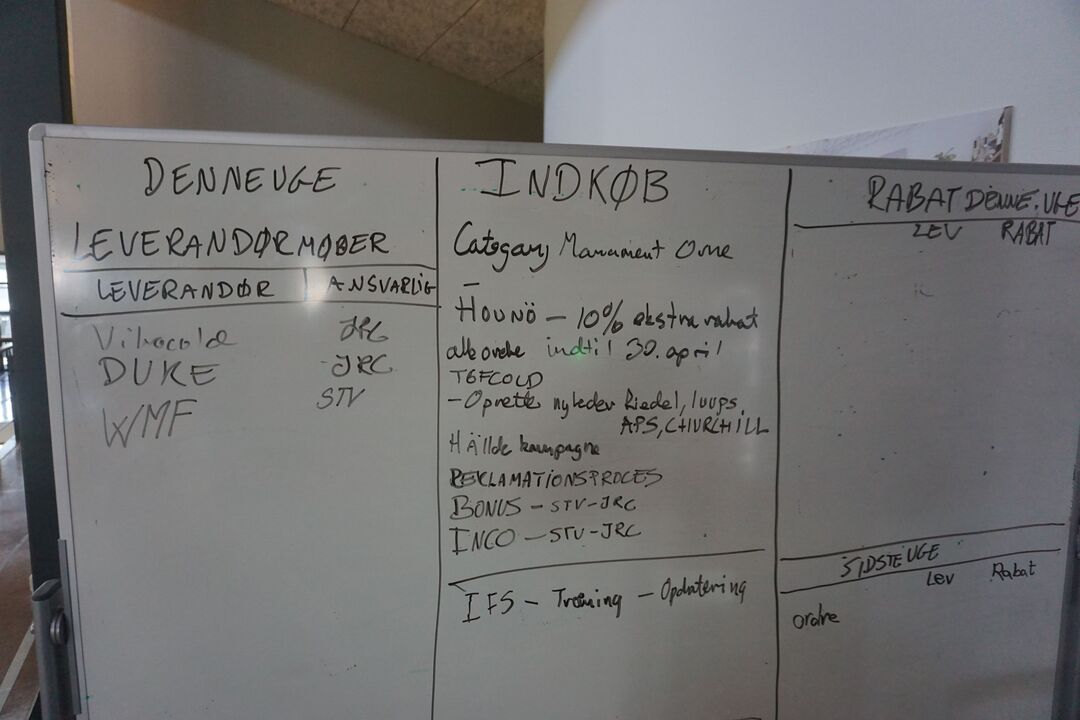 DENNE UGE
LEVERANDØRMØBER
LEVERANDØR ANSVARLIG
Vibocold JRC
DUKE JRC
WMF STV
INDKØB
Category Manament Ovne
HOUNÖ - 10% ekstra rabat
alle ovne indtil 30. april
TEFCOLD
- Oprette nyheder Riedel, luups,
APS, CHURCHILL
Hällde kampagne
REKLAMATIONSPROCES
BONUS - STV-JRC
INCO - STV-JRC
IFS - Træning - Opdatering
RABAT DENNE UGE
LEV RABAT
SIDSTE UGE
Lev Rabat
ordre